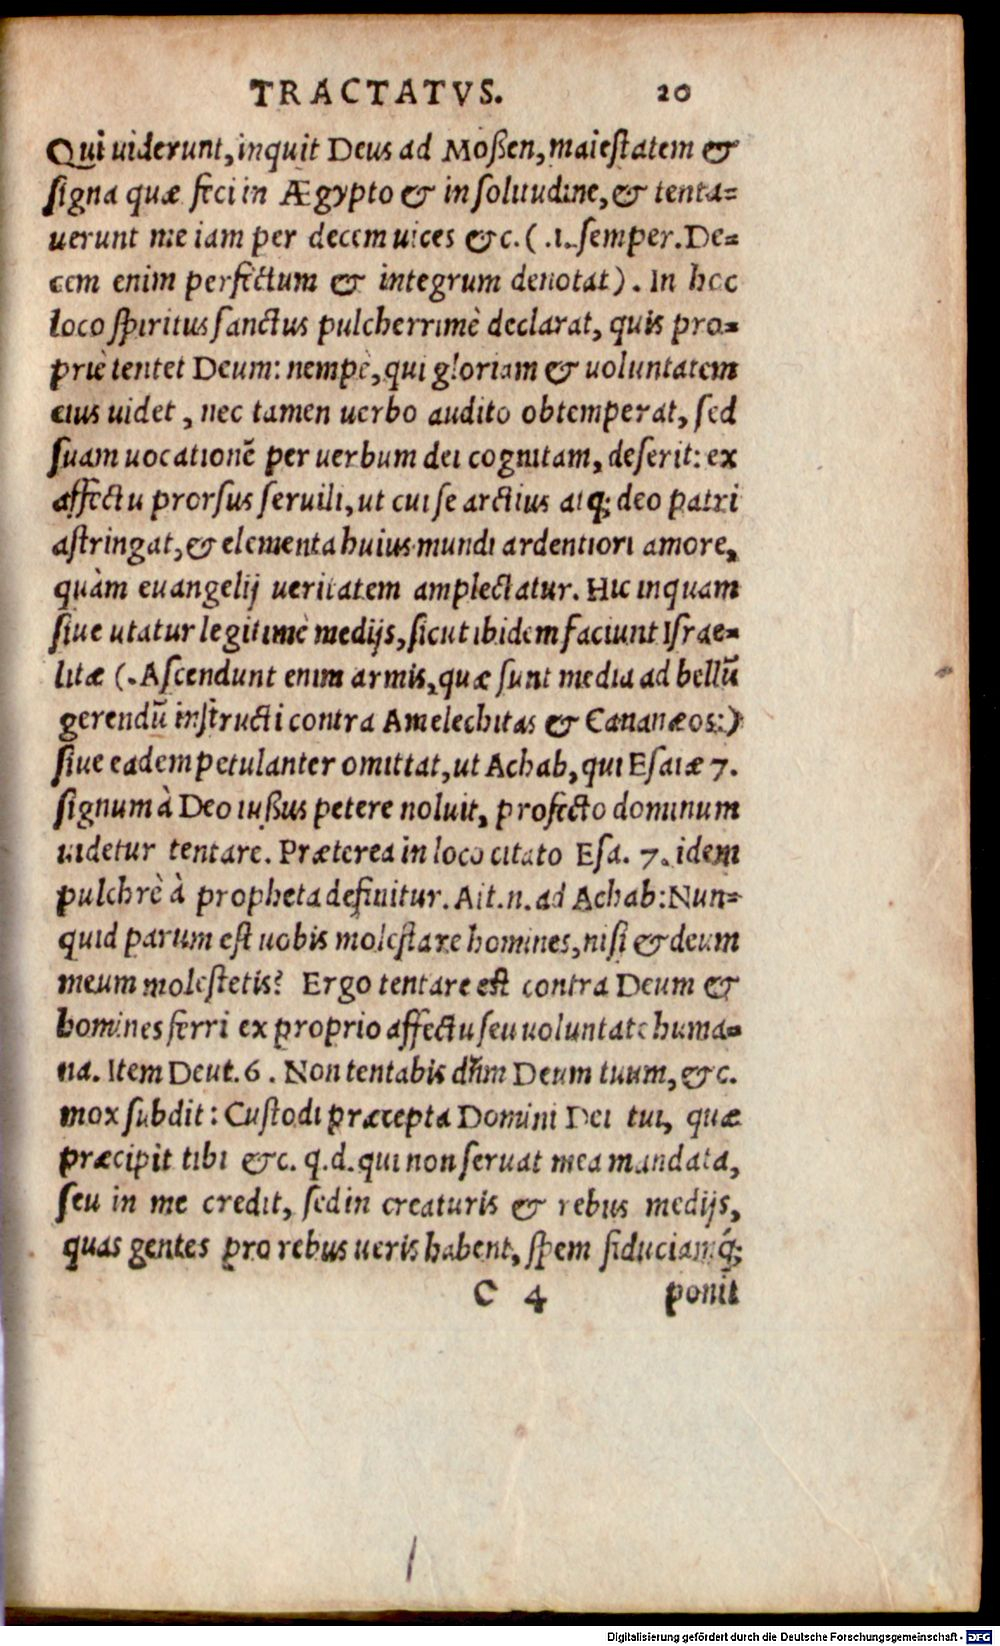 TRACTATVS. 20
Qui uiderunt, inquit Deus ad Moßen, maiestatem &
signa quæ feci in Ægypto & in solitudine, & tenta=
uerunt me iam per decem uices &c. (.i. semper. De=
cem enim perfectum & integrum denotat). In hoc
loco spiritus sanctus pulcherrimè declarat, quis pro=
priè tentet Deum: nempè, qui gloriam & uoluntatem
eius uidet, nec tamen uerbo audito obtemperat, sed
suam uocationē per uerbum dei cognitam, deserit: ex
affectu prorsus seruili, ut cui se arctius atq; deo patri
astringat, & elementa huius mundi ardentiori amore,
quàm euangelij ueritatem amplectatur. Hic inquam
siue utatur legitimè medijs, sicut ibidem faciunt Israe=
litæ (. Ascendunt enim armis, quæ sunt media ad bellū
gerendū instructi contra Amelechitas & Cananæos:)
siue eadem petulanter omittat, ut Achab, qui Esaiæ 7.
signum à Deo iußus petere noluit, profecto dominum
uidetur tentare. Præterea in loco citato Esa. 7. idem
pulchrè à propheta definitur. Ait.n. ad Achab: Nun=
quid parum est uobis molestare homines, nisi & deum
meum molestetis? Ergo tentare est contra Deum &
homines ferri ex proprio affectu seu uoluntate huma=
na. Item Deut. 6. Non tentabis dn̄m Deum tuum, &c.
mox subdit: Custodi præcepta Domini Dei tui, quæ
præcipit tibi &c. q.d. qui non seruat mea mandata,
seu in me credit, sed in creaturis & rebus medijs,
quas gentes pro rebus ueris habent, spem fiduciamq́;
C 4 ponit
Digitalisierung gefördert durch die Deutsche Forschungsgemeinschaft - DFG